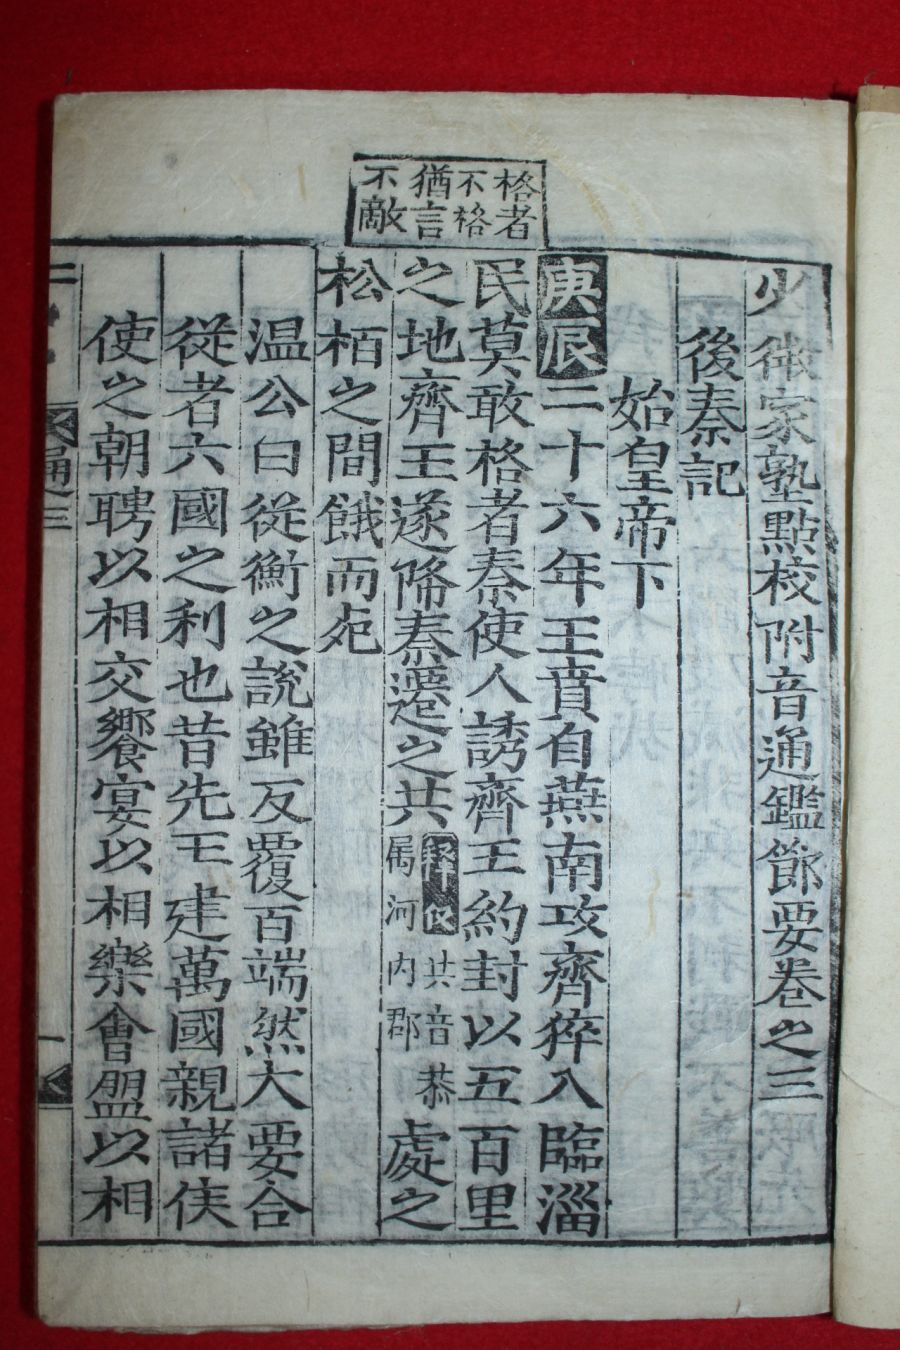 格者
不格
猶言
不敵
少微家塾點校附音通鑑節要卷之三
後秦記
始皇帝下
庚辰二十六年王賁自燕南攻齊猝入臨淄
民莫敢格者秦使人誘齊王約封以五百里
之地齊王遂降秦遷之共
共音恭
屬河内郡
處之
松栢之間餓而死
温公曰從衡之說雖反覆百端然大要合
從者六國之利也昔先王建萬國親諸侯
使之朝聘以相交饗宴以相樂會盟以相
通三